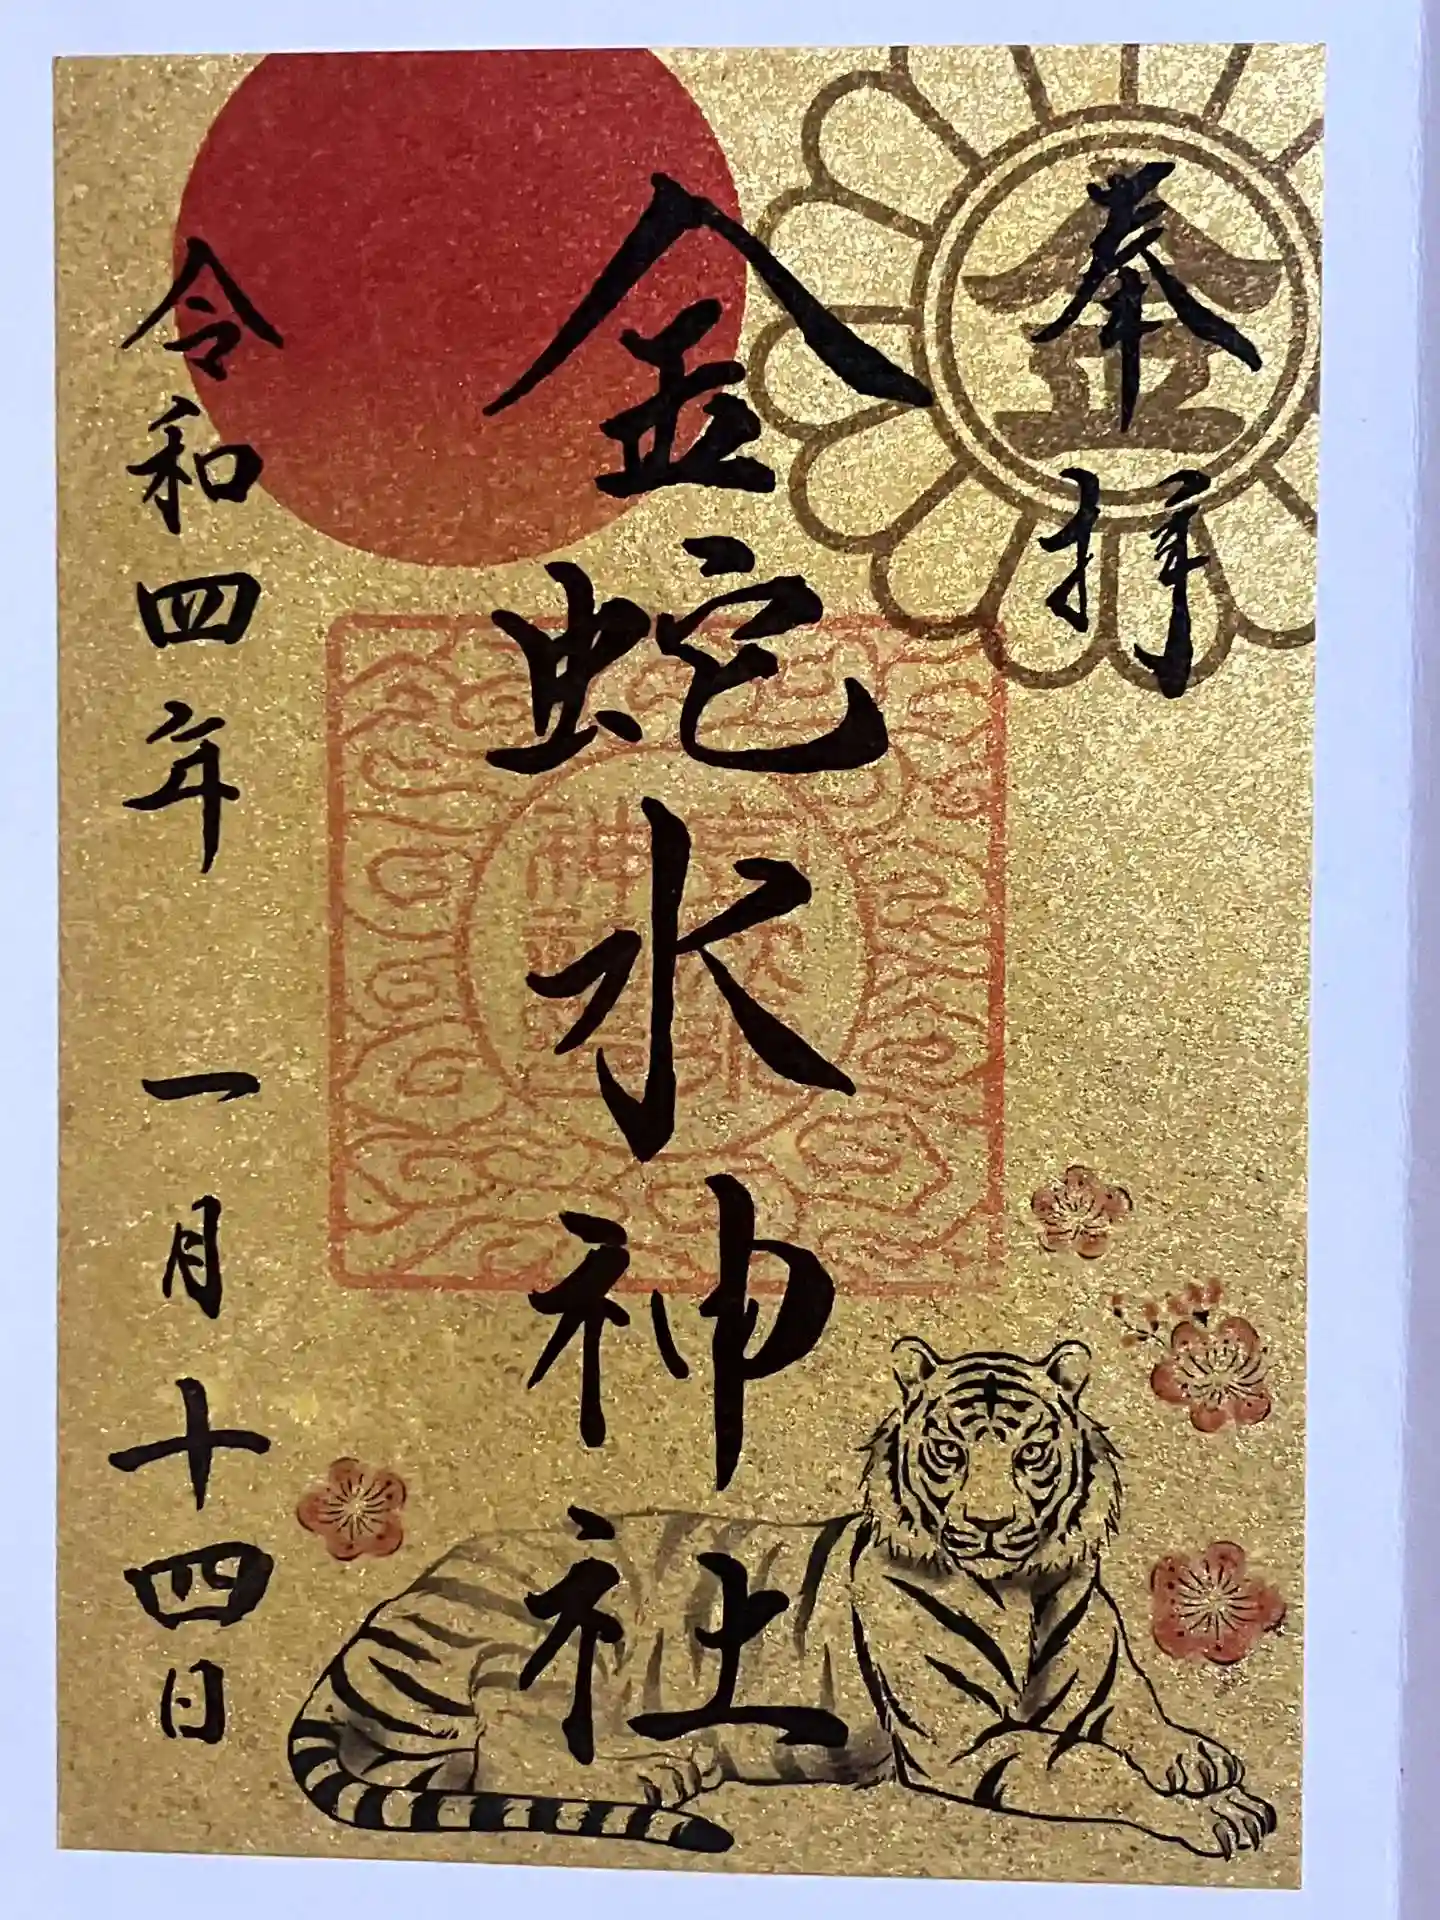 奉拝
金
金蛇水神社
令和四年一月十四日